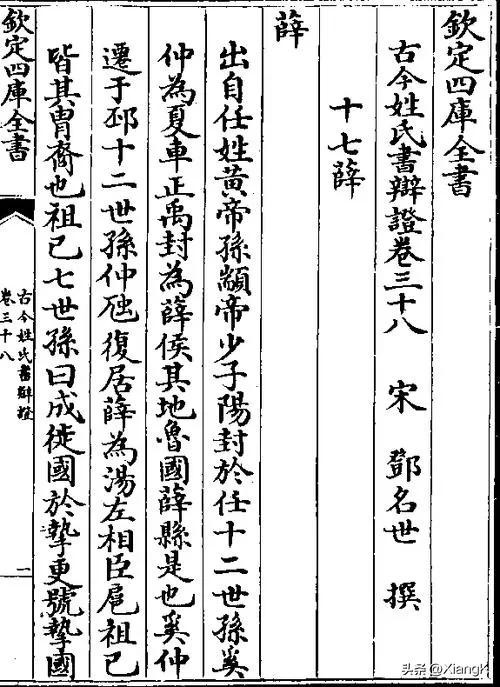 欽定四庫全書
古今姓氏書辯證卷三十八 宋 鄧名世 撰
十七薛
薛
出自任姓黄帝孫顓帝少子陽封於任十二世孫奚
仲為夏車正禹封為薛侯其地魯國薛縣是也奚仲
遷于邳十二世孫仲虺復居薛為湯左相臣扈祖已
皆其胄裔也祖已七世孫曰成徙國於摯更號摯國
欽定四庫全書
古今姓氏書辯證
卷三十八
一
头条 @XiangK